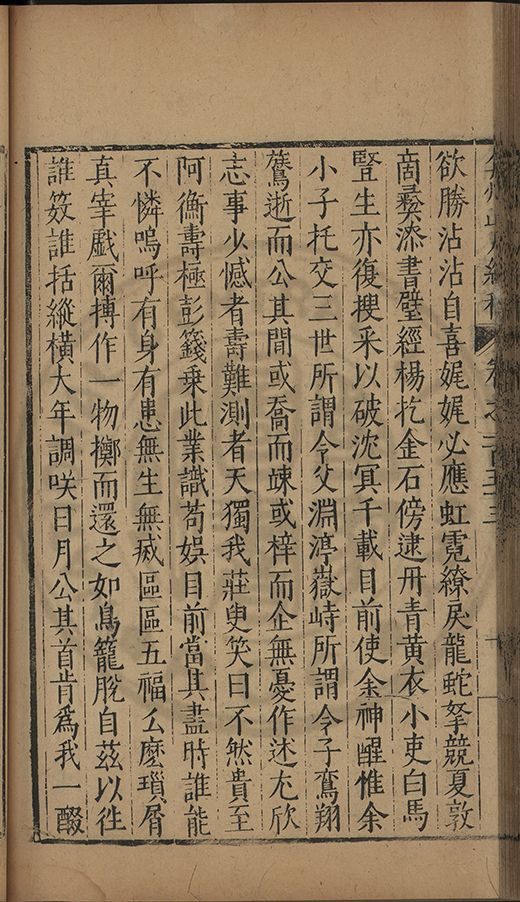 弇州山人續稿 卷之一百五十三 十
欲勝沾沾自喜娓娓必應虹霓繚戾龍蛇拏競夏敦
商彝漆書壁經楊扢金石傍逮丹青黃衣小吏白馬
豎生亦復搜采以破沈冥千載目前使余神醒惟余
小子托交三世所謂令父淵渟嶽峙所謂令子鸞翔
鷟逝而公其間或喬而竦或梓而企無憂作述尤欣
志事少憾者壽難測者天獨我莊叟笑曰不然貴至
阿衡壽極彭籛乗此業識苟娛目前當其盡時誰能
不憐嗚呼有身有患無生無烕區區五福么麼瑣屑
真宰戲爾摶作一物擲而還之如鳥籠脫自茲以往
誰笯誰括縱橫大年調咲日月公其首肯為我一醊